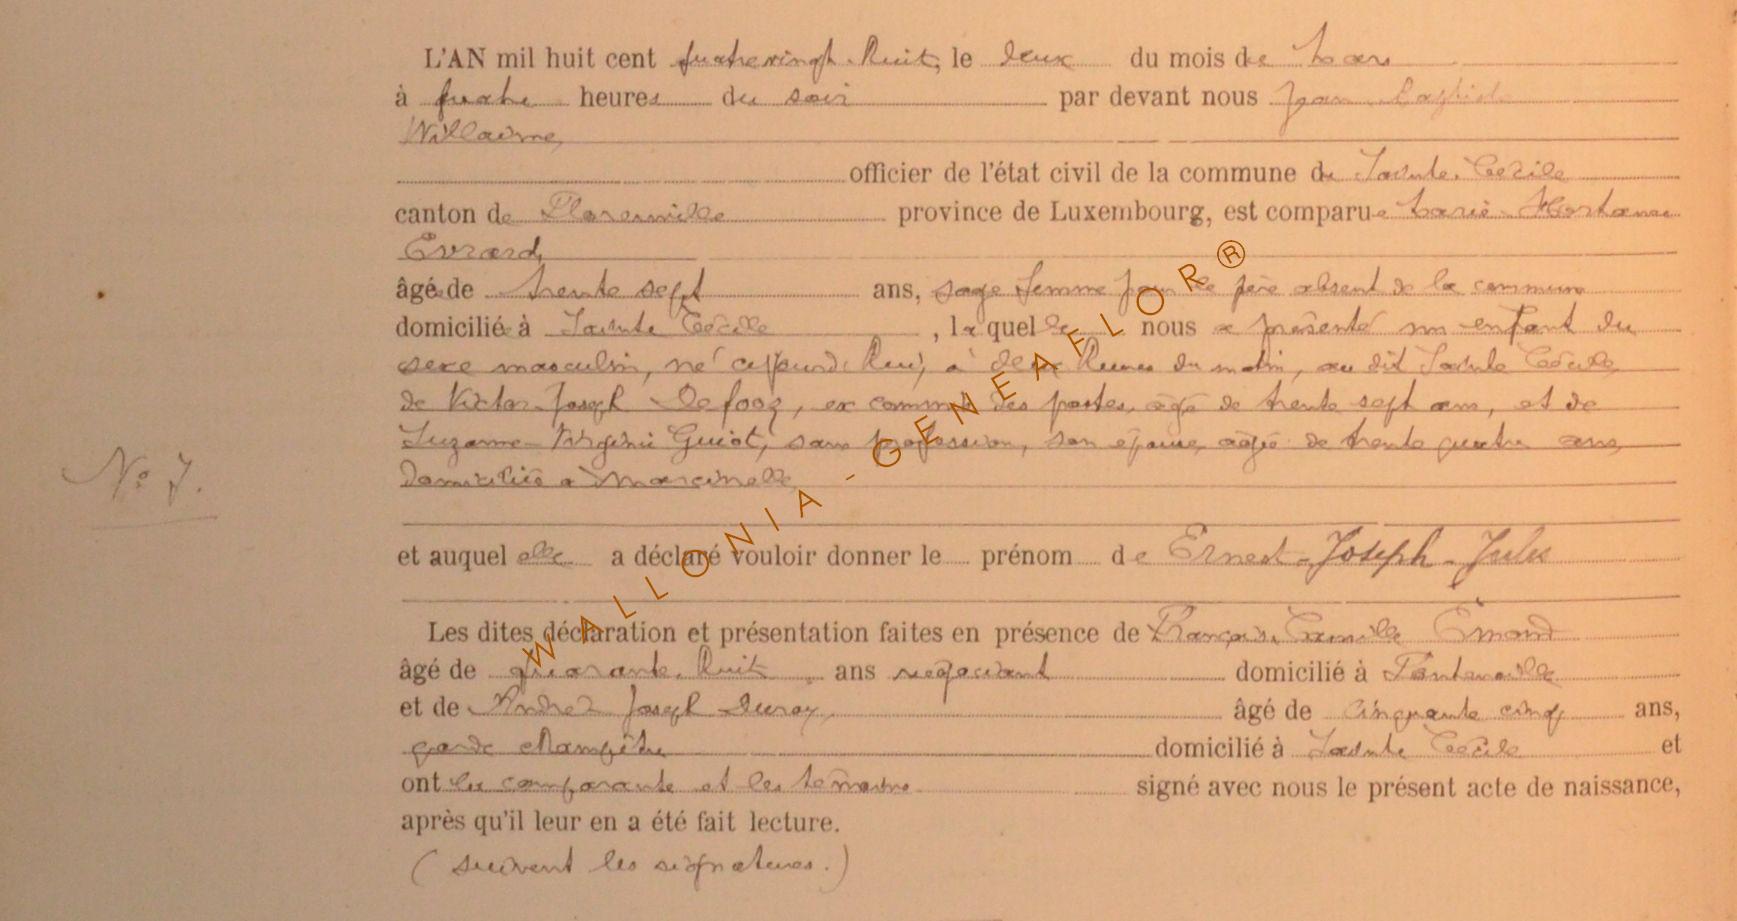 L'AN mil huit cent quatrevingt-huit, le deux du mois de Mars
à quatre heures du soir par devant nous Jean Baptiste
Willaime,
officier de l'état civil de la commune de Sainte-Cécile
canton de Florenville province de Luxembourg, est comparue Marie-Hortense
Evrard,
âgée de trente sept ans, sage femme pour le père absent de la commune
domiciliée à Sainte Cécile, laquelle nous a présenté un enfant du
sexe masculin, né cejourd'hui, à deux heures du matin, au dit Sainte Cécile,
de Victor-Joseph Defooz, ex commis des postes, âgé de trente sept ans, et de
Suzanne-Virginie Guiot, sans profession, son épouse, âgée de trente quatre ans,
domiciliés à Marcinelle,
N° 7.
et auquel elle a déclaré vouloir donner le prénom de Ernest-Joseph-Jules
Les dites déclaration et présentation faites en présence de François-Camille Emond
âgé de quarante-huit ans négociant domicilié à Fontenoille
et de André Joseph Duroy, âgé de cinquante cinq ans,
garde champêtre domicilié à Sainte Cécile et
ont les comparante et les témoins signé avec nous le présent acte de naissance,
après qu'il leur en a été fait lecture.
(suivent les signatures.)
WALLONIA-GENEAFLOR®